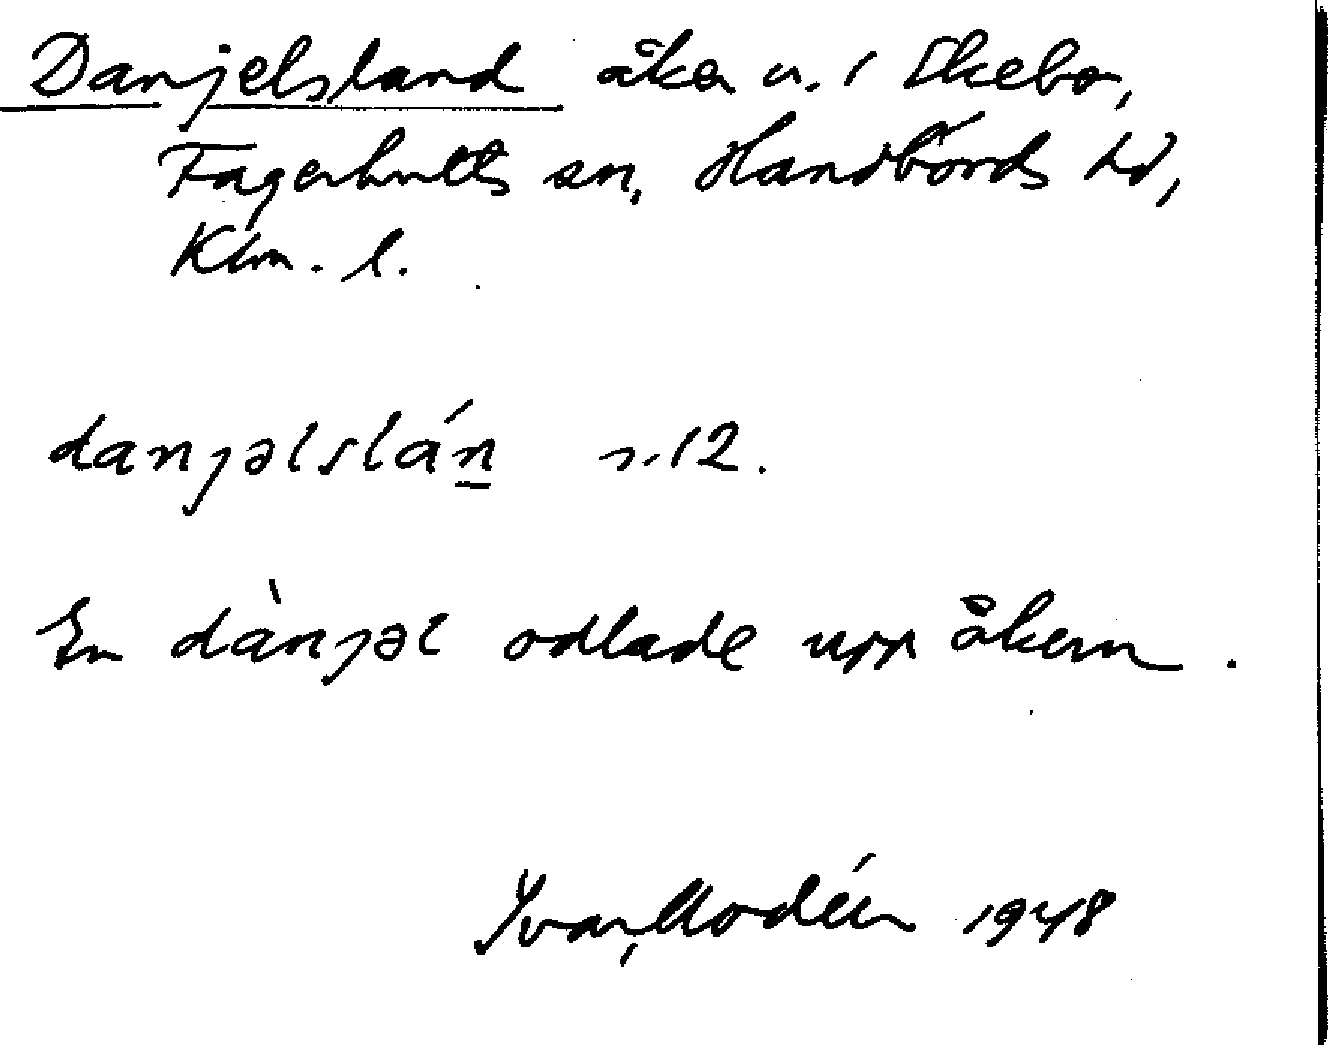 Danjelsland åker n. i Ekebo,
Fagerhults sn, Handbörds hd,
Klm. l.
danjəlslán n. 12.
En dànjəl odlade upp åkern.
Yvar Modéer 1948